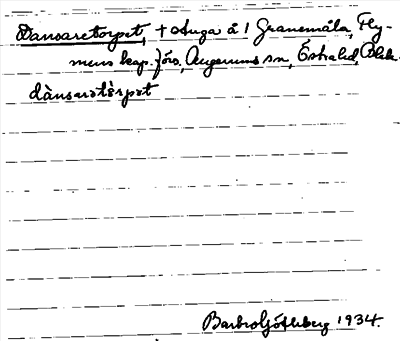 Dansaretorpet, + stuga å 1 Granemåla, Fly-
mens kap. förs, Augerums sn, Östra hd, Blek.
dànsarətòrpət
Barbro Götherberg 1934.